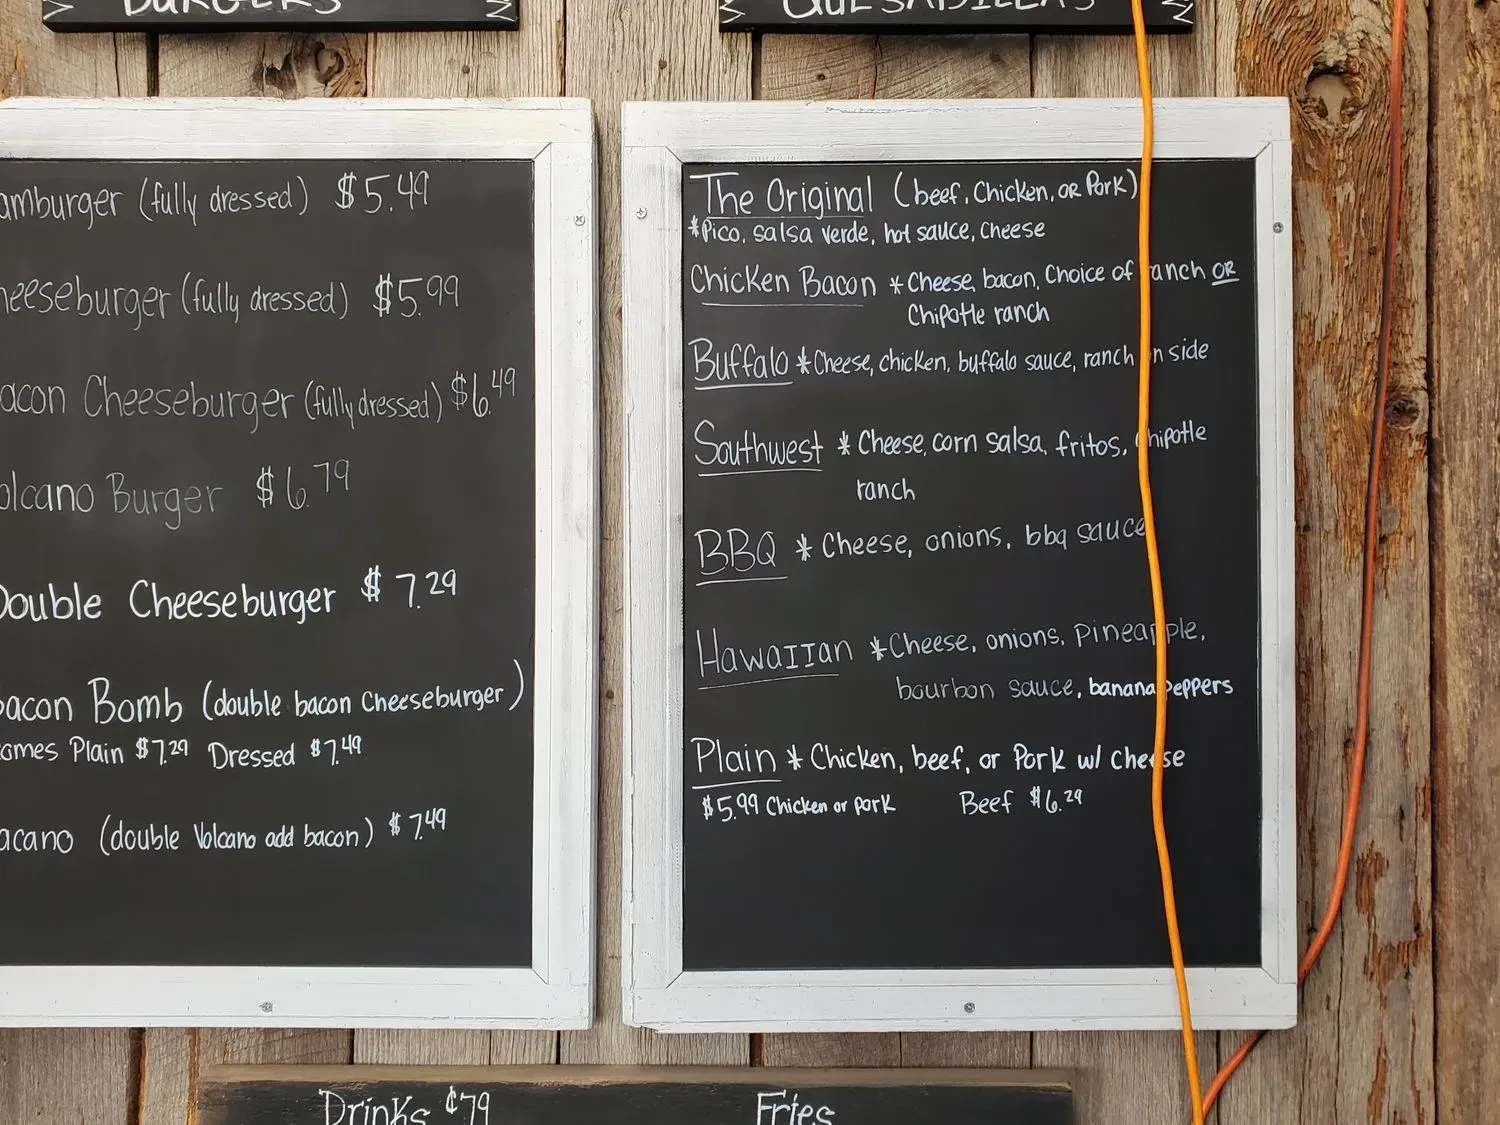 BURGERS
amburger (fully dressed) $5.49
heeseburger (fully dressed) $5.99
acon Cheeseburger (fully dressed) $6.49
olcano Burger $6.79
Double Cheeseburger $7.29
acon Bomb (double bacon cheeseburger)
omes Plain $7.29 Dressed $7.49
acano (double Volcano add bacon) $7.49
QUESADILLAS
The Original (beef, Chicken, or Pork)
*Pico, salsa verde, hot sauce, cheese
Chicken Bacon *Cheese, bacon, Choice of ranch OR
Chipotle ranch
Buffalo *Cheese, chicken, buffalo sauce, ranch on side
Southwest *Cheese, corn salsa, fritos, chipotle
ranch
BBQ *Cheese, onions, bbq sauce
Hawaiian *Cheese, onions, pineapple,
bourbon sauce, banana peppers
Plain *Chicken, beef, or Pork w/ cheese
$5.99 Chicken or pork Beef $6.29
Drinks ¢79 Fries